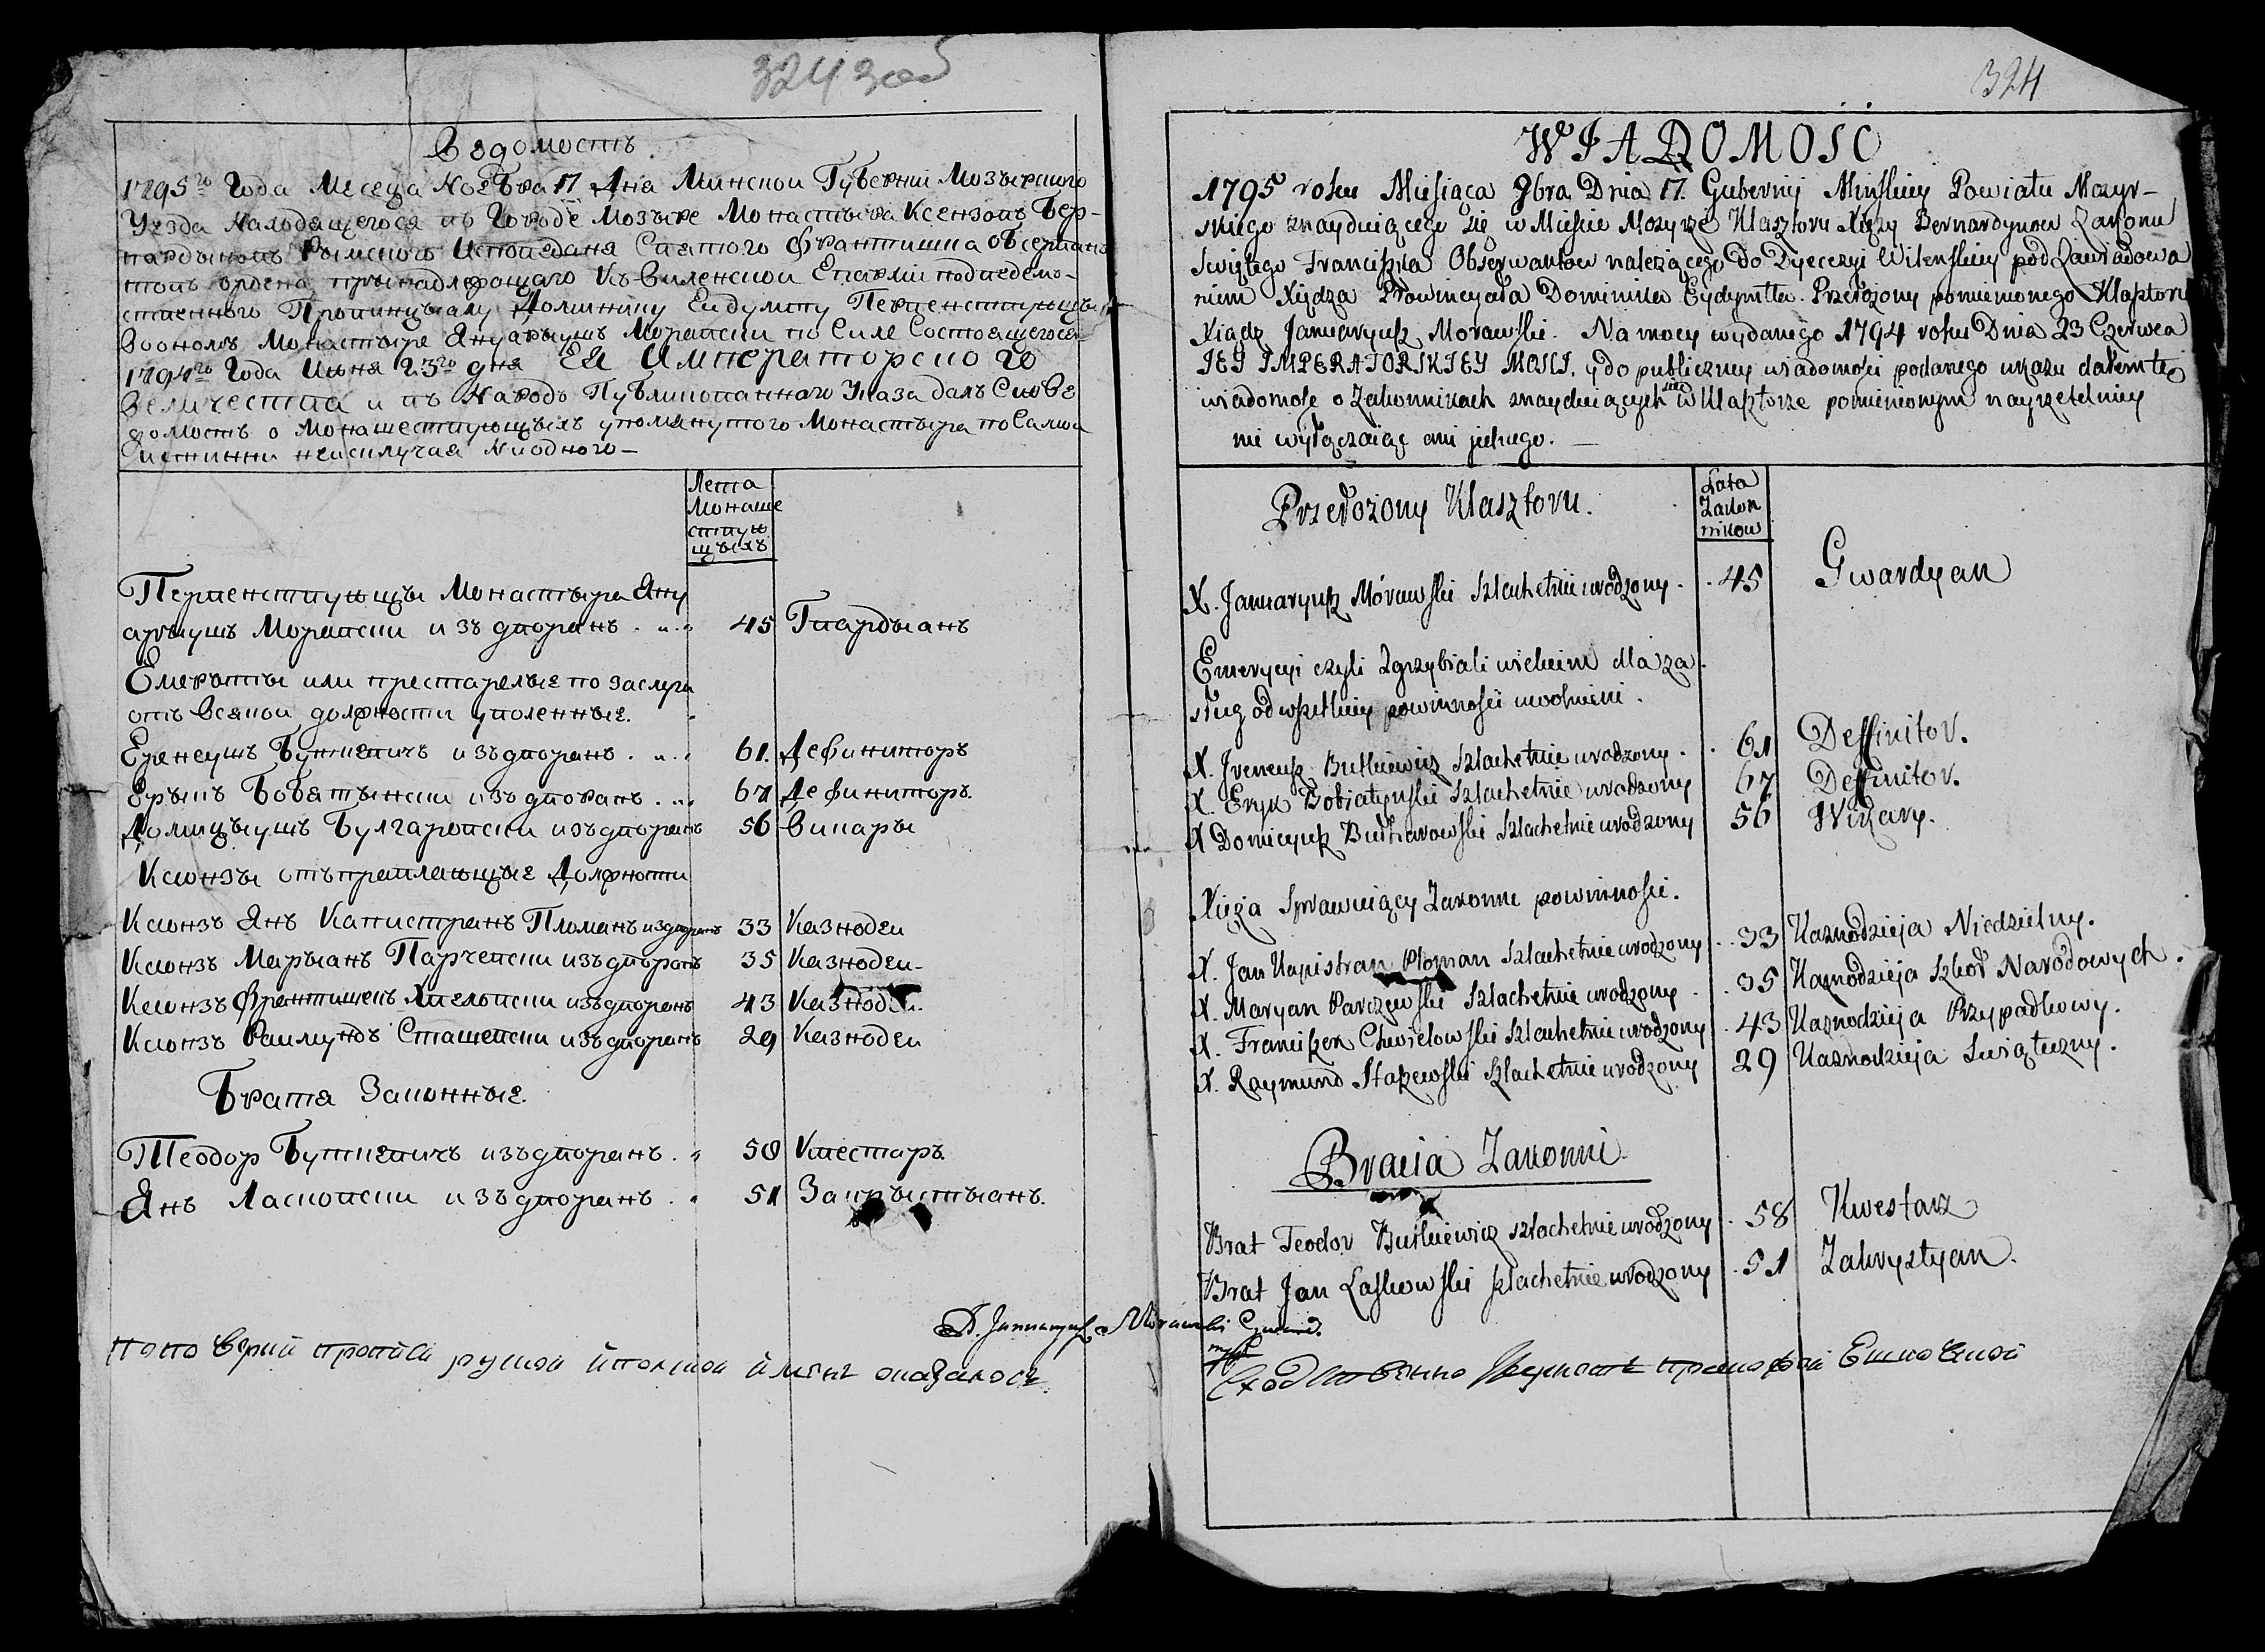 324 зоб
Ведомость
1795го Года Месеца Ноебъра 17 Дна Минской Губерніи Мозырского
Уезда Находящегося въ Городе Мозыре Монастыра Ксензовъ Бер-
нардыновъ Рымского Исповеданя Святого Франтишка Обсерван-
товъ ордена прынадлежащаго Къ Виленской Епархіи подведом-
ственного Провинцыалу Доминику Ейдумту Первенствующы
Воономъ Монастыре Януарыушъ Моравски по Силе Состоящегося
1794го Года Июня 23го дня Ея Императорского
Величества и въ Народъ Публикованного Указа далъ Сию Ве
домость о Монашествующыхъ упомянутого Монастыра по Самой
Истинни неисключая Ниодного —
Лета
Монаше
ствую
щыхъ
Первенствующы Монастыра Яну
арыушъ Моравски изъ дворанъ . „ . 45 Гвардыанъ
Емерыты или престарелые по заслуга
отъ Всякой должности уволенные.
Еренеушъ Буткевичъ изъ дворанъ . „ . 61. Дефиниторъ
Ерыкъ Бобятынски изъ дворанъ . „ . 67 Дефиниторъ.
Домицыушъ Булгаровски изъ дворанъ 56 Викары
Ксионзы отъправлающые Должности
Ксионзъ Янъ Капистранъ Пломанъ из дворанъ 33 Казнодеи
Ксионзъ Марыанъ Парчевски изъ дворанъ 35 Казнодеи-
Ксионзъ Франтишекъ Хвеловски изъ дворанъ 43 Казнодеи.
Ксионзъ Раимундъ Сташевски изъ дворанъ 29 Казнодеи
Братя Законные.
Теодор Буткевичъ изъ дворанъ . „ 58 Квестаръ.
Янъ Ласковски изъ дворанъ . „ 51 Закрыстыанъ.
X. Januaryusz Morawski Gward.
mp
324
WIADOMOSC
1795 roku Miesiąca 9bra Dnia 17. Gubernij Minskiey Powiatu Mozyr-
skiego znayduiącego się w Miescie Mozyrze Klasztoru Xięży Bernardynow Zakonu
Swiętego Franciszka Obserwantow należącego do Dyecezyi Wilenskiey pod Zawiadowa
niem Xiędza Prowincyała Dominika Eydymtta. Przełożony pomienionego Klasztoru
Xiądz Januaryusz Morawski. Na mocy wydanego 1794 roku Dnia 23 Czerwca
JEY IMPERATORSKIEY MOSCI, y do publiczney wiadomości podanego ukazu dałem tę
wiadomość o Zakonnikach znayduiących się w Klasztorze pomienionym nayrzetelniey
nie wyłączaiąc ani jednego. —
Przełożony Klasztoru.
Lata
Zakon
nikow
X. Januaryusz Mórawski Szlachetnie urodzony. . 45 Gwardyan
Emerycyi czyli Zgrzybiali wiekiem dla za
sług od wszelkiey powinności uwolnieni.
X. Ireneusz Butkiewicz Szlachetnie urodzony. . 61 Deffinitor.
X. Eryk Bobiatynski Szlachetnie urodzony 67 Deffinitor.
X Domicyusz Bułharowski Szlachetnie urodzony 56 Wikary.
Xięża Sprawuiący Zakonne powinności.
X. Jan Kapistran Ploman Szlachetnie urodzony . 33 Kaznodzieja Niedzielny.
X. Maryan Parczewski Szlachetnie urodzony . 35 Kaznodzieja Szkoł Narodowych.
X. Franciszek Chwiełowski Szlachetnie urodzony . 43 Kaznodzieja Przypadkowy.
X. Raymund Staszewski Szlachetnie urodzony 29 Kaznodzieja Swiąteczny.
Bracia Zakonni
Brat Teodor Butkiewicz szlachetnie urodzony . 58 Kwestarz
Brat Jan Laskowski szlachetnie urodzony . 51 Zakrystyan.